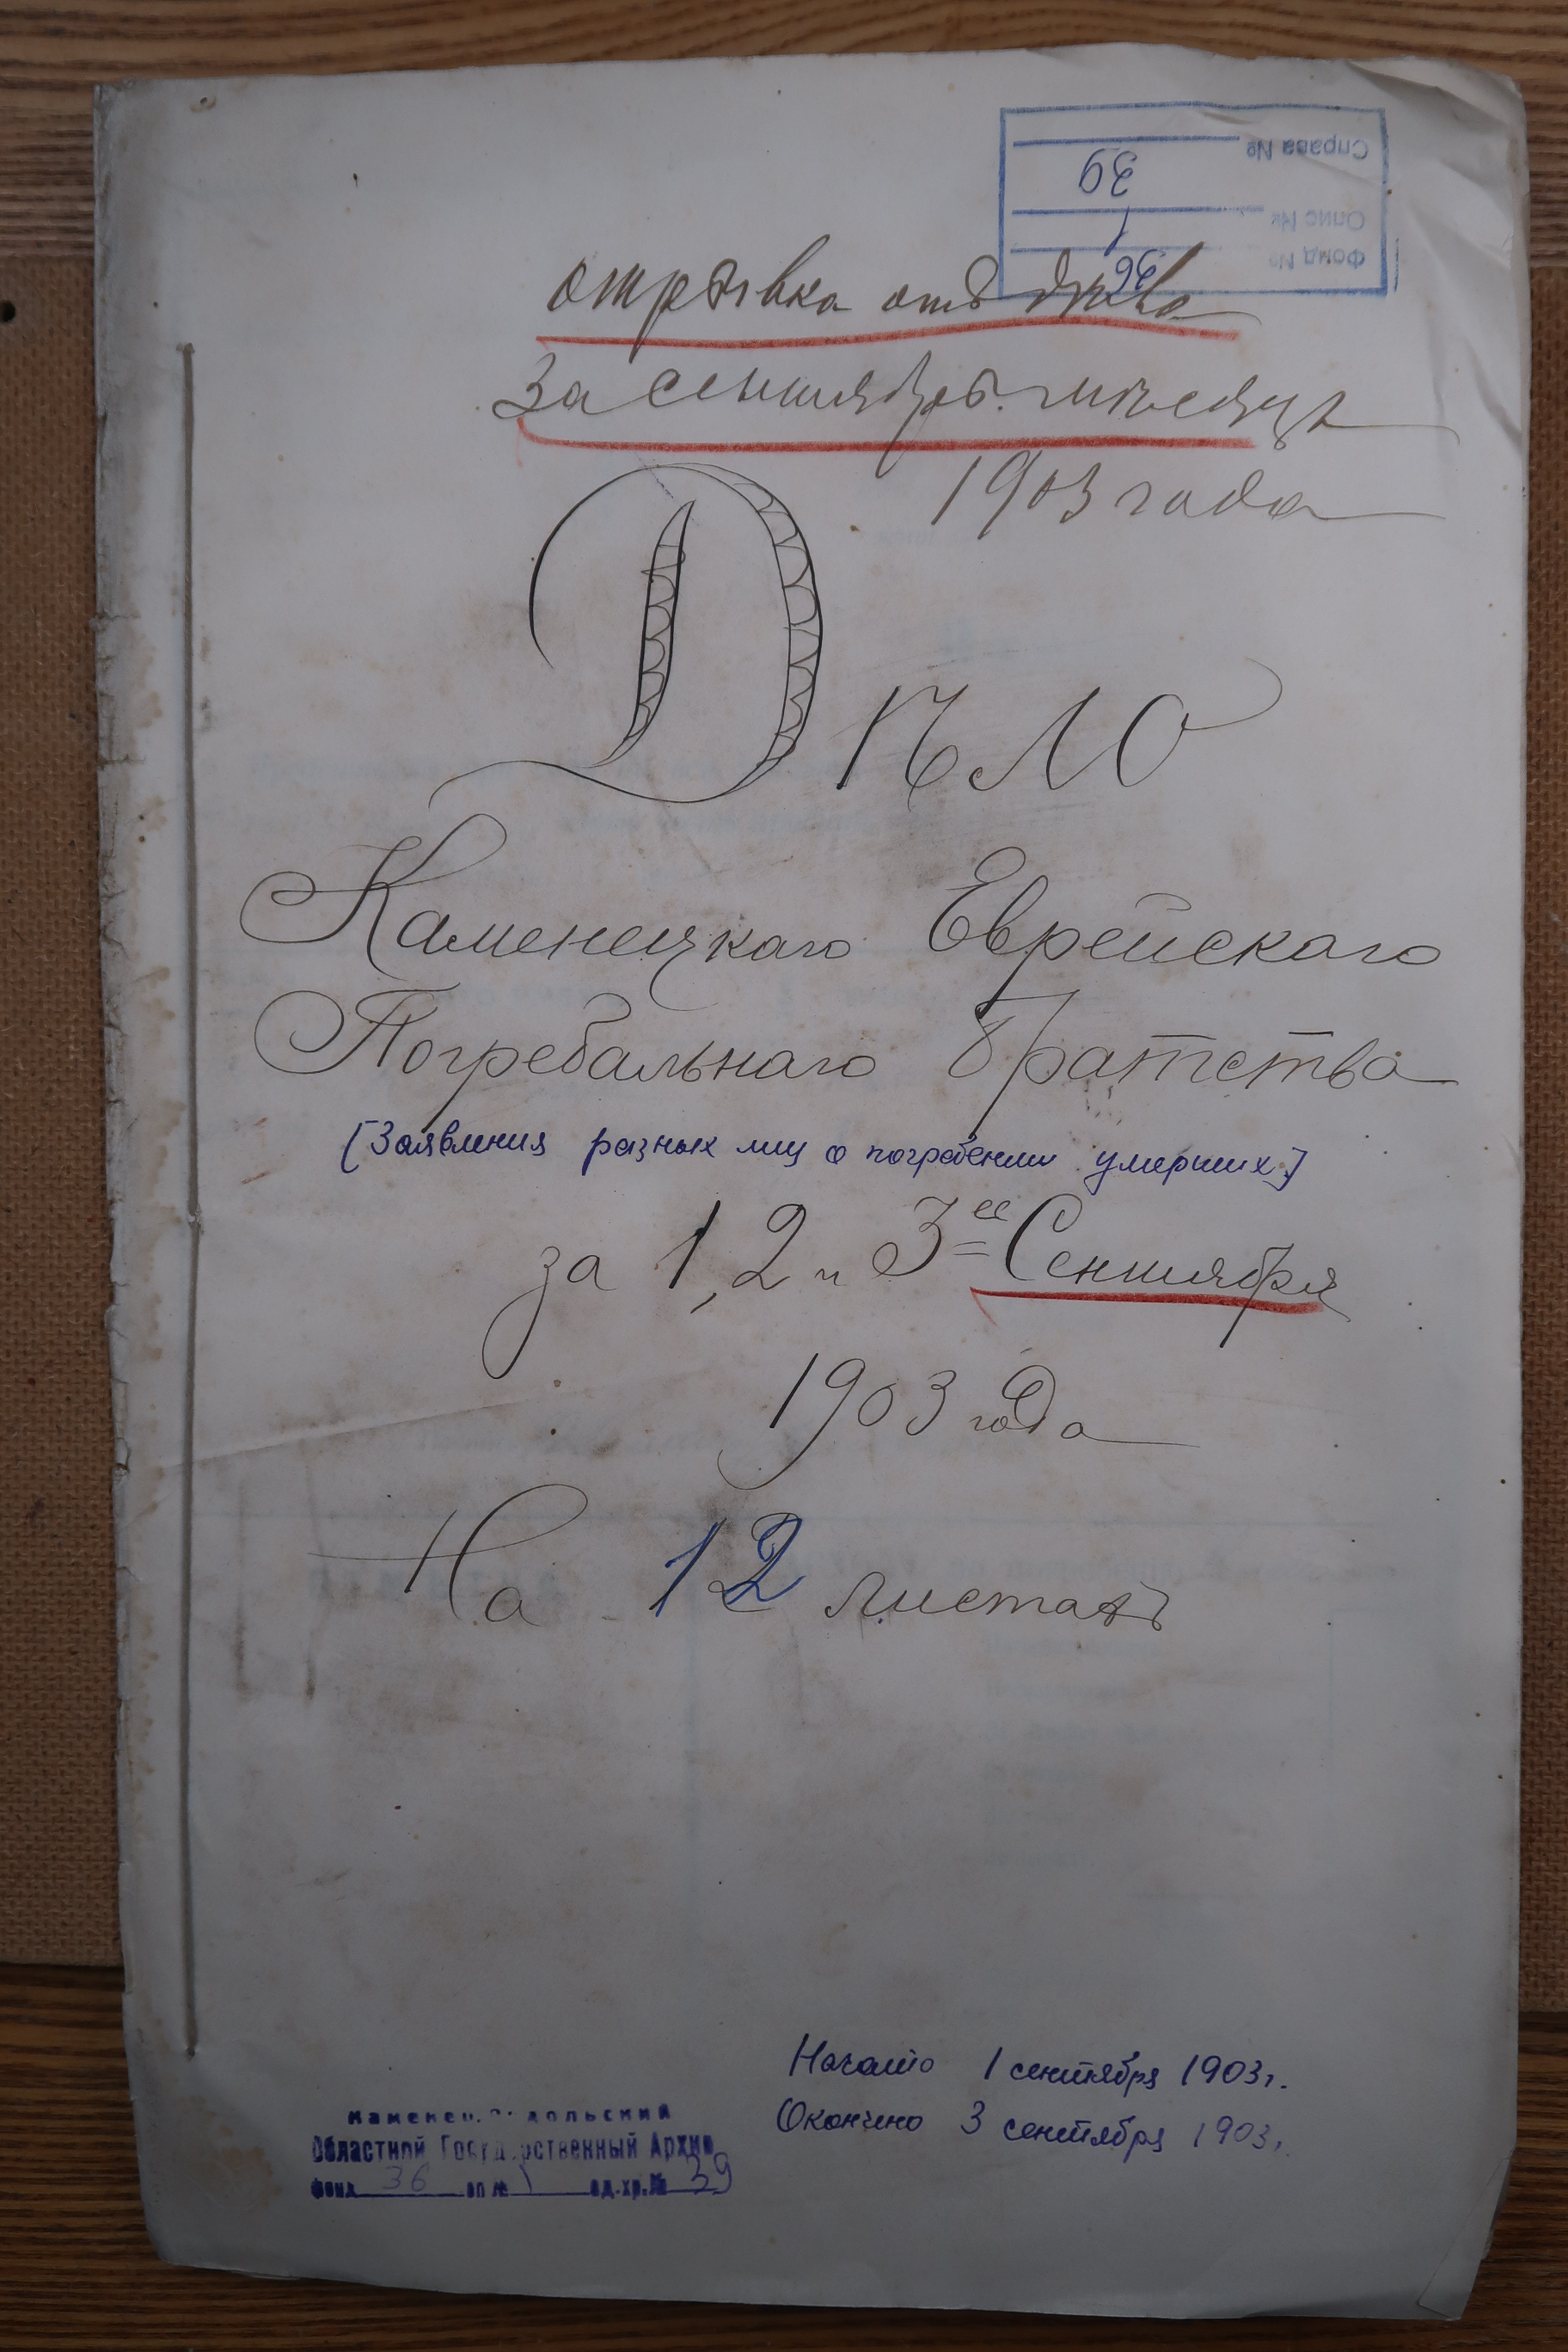 Справа № 39
Опис № 1
Фонд № 36
отрывка отъ дѣла
за сентябрь мѣсяцъ
1903 года
Дѣло
Каменецкаго Еврейскаго
Погребальнаго Братства
[Заявления разных лиц о погребении умерших]
за 1, 2 и 3ее Сентября
1903 года
На 12 листахъ
Начато 1 сентября 1903 г.
Окончено 3 сентября 1903 г.
Областной Государственный Архив
Фонд 36 оп № 1 ед. хр. № 39